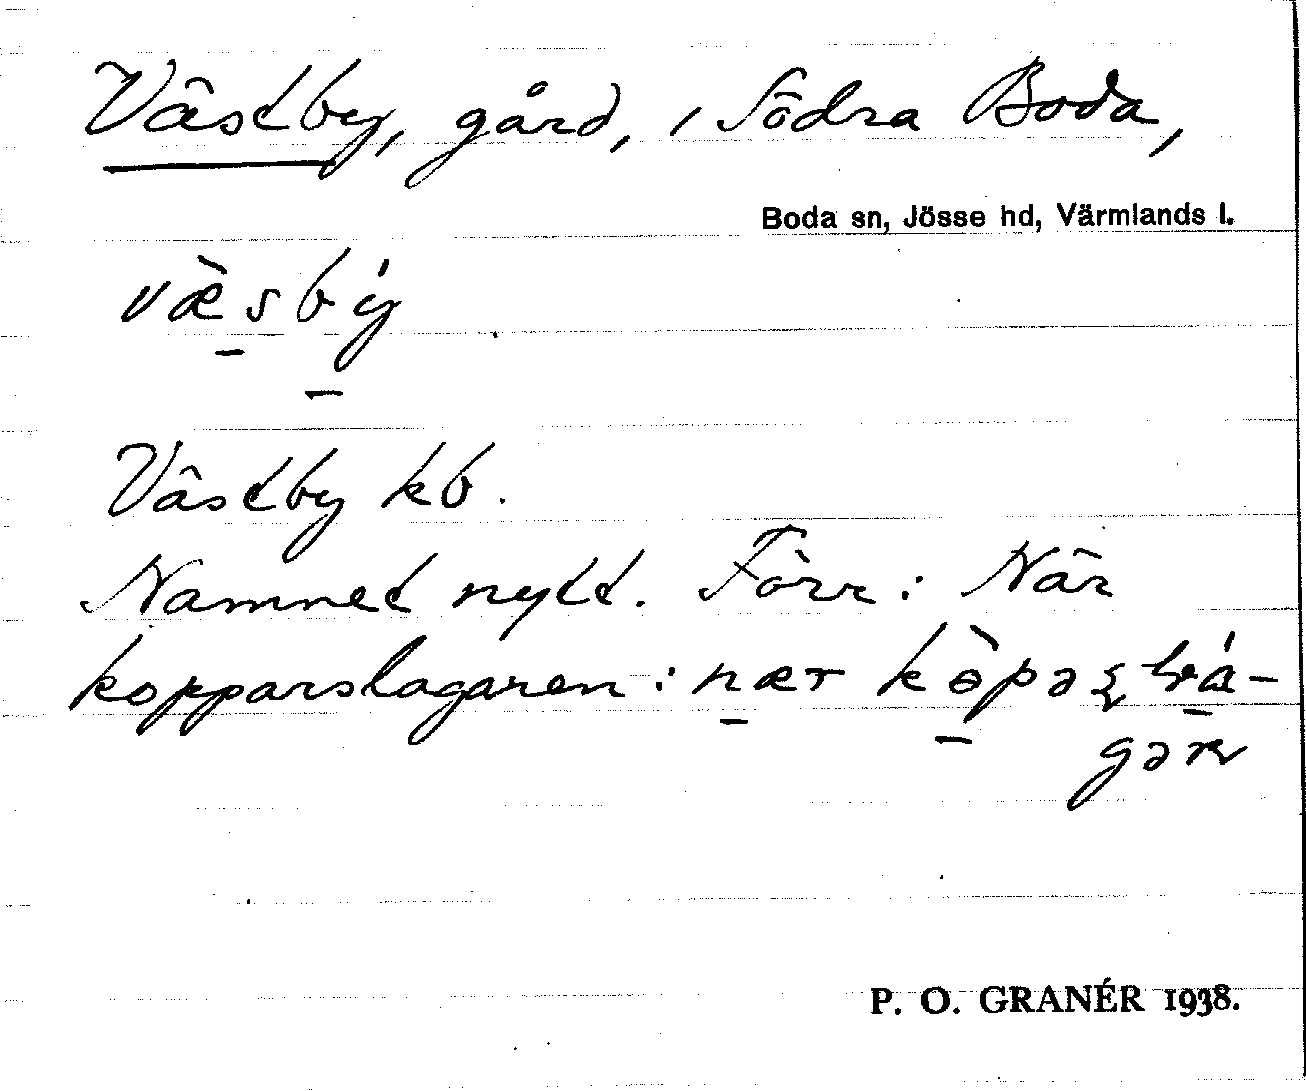 Västby, gård, i Södra Boda,
Boda sn, Jösse hd, Värmlands l.
væ̀sbý
Västby kb.
Namnet nytt. Förr: När
kopparslagaren: nær
P. O. GRANÉR 1938.